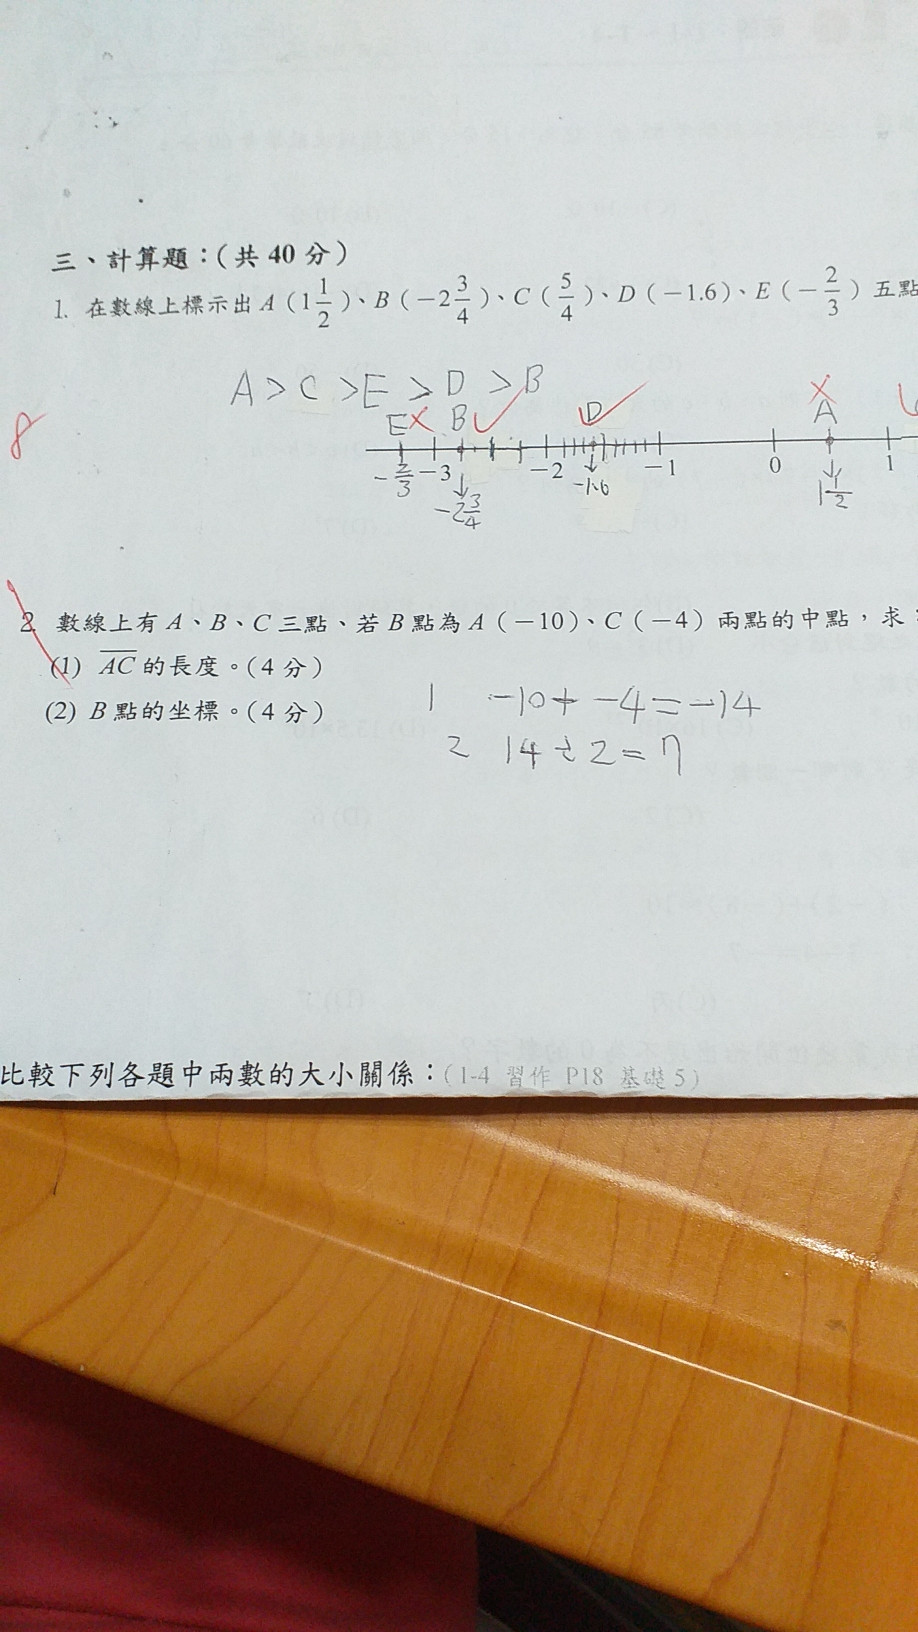 三、計算題：(共 40 分)
1. 在數線上標示出 A (1 1/2)、B (-2 3/4)、C (5/4)、D (-1.6)、E (-2/3) 五點
A > C > E > D > B
8
E B D A
-2/3 -3 -2 -1.6 -1 0 1
-2 3/4 1 1/2
2. 數線上有 A、B、C 三點、若 B 點為 A (-10)、C (-4) 兩點的中點，求
(1) AC 的長度。(4 分)
(2) B 點的坐標。(4 分)
1 -10 + -4 = -14
2 14 ÷ 2 = 7
比較下列各題中兩數的大小關係：(1-4 習作 P18 基礎 5)